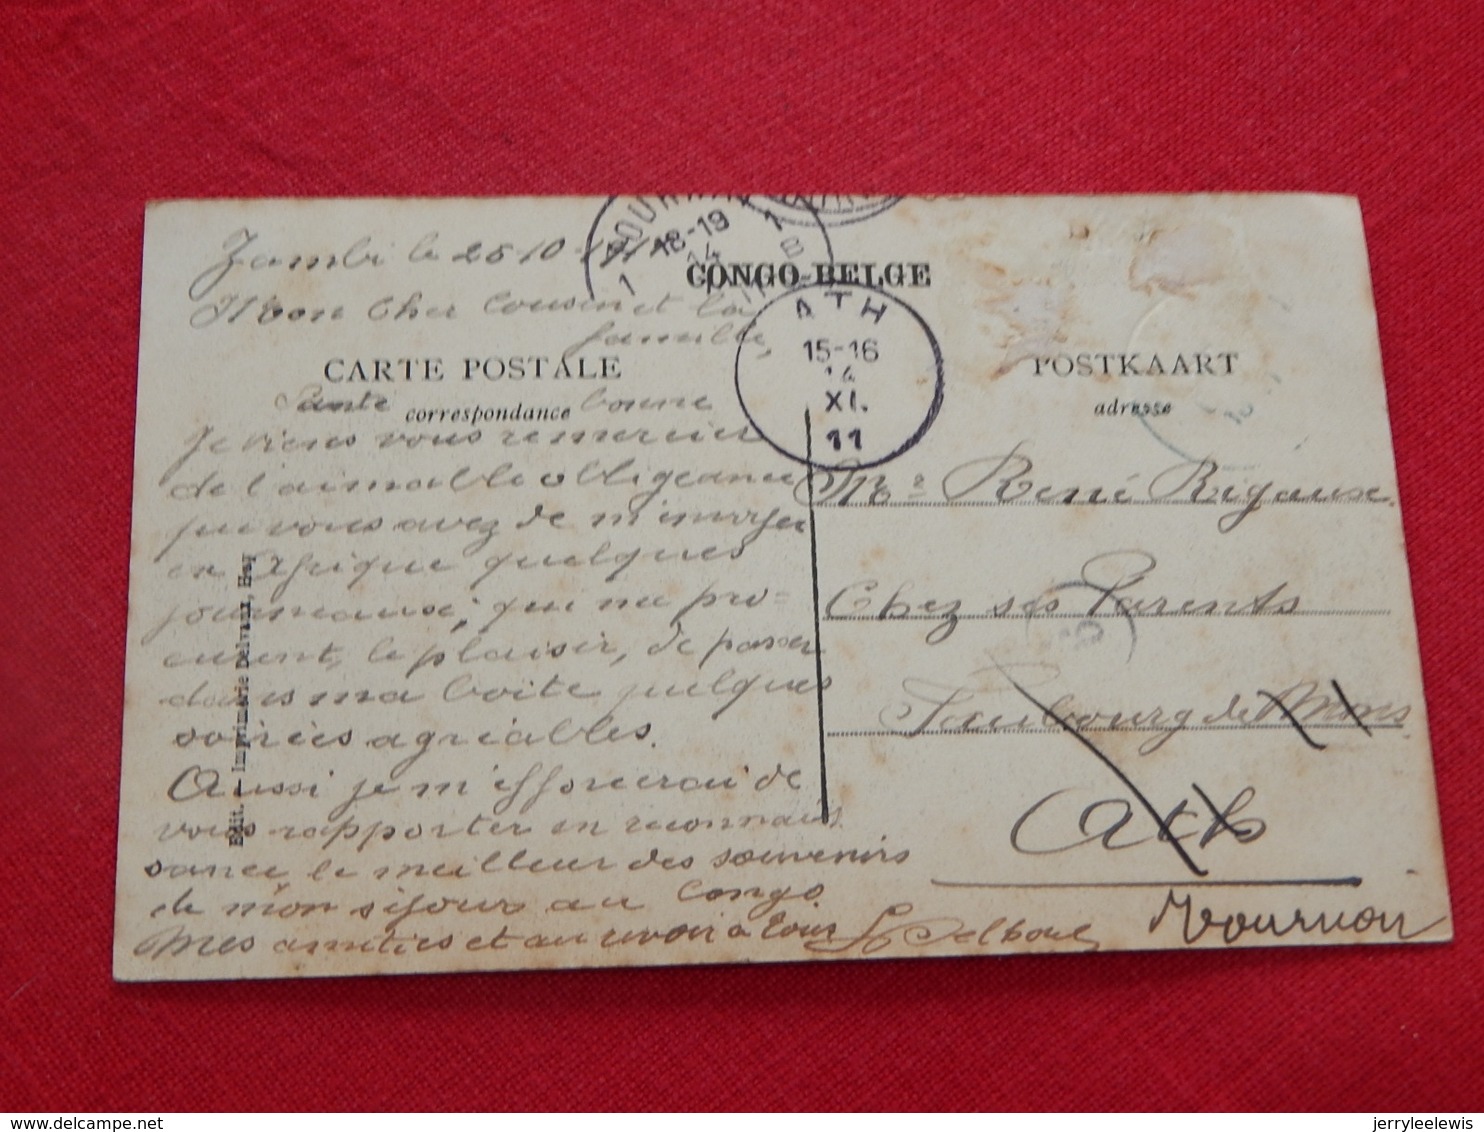 Zambi le 25-10-11
Mon Cher Cousin et la
famille,
CONGO-BELGE
CARTE POSTALE
correspondance
Santé bonne
Je viens vous remercier
de l'aimable obligeance
que vous avez de m'envoyer
en Afrique quelques
journeaux, qui me pro=
curent, le plaisir, de passer
dans ma boîte quelques
soirées agréables.
Aussi je m'efforcerai de
vous rapporter en reconnais
sance le meilleur des souvenirs
de mon séjour au Congo.
Mes amitiés et au revoir à tous
Edit. — Imprimerie Delvaux, Huy
TOURNAI 1
1 B
18-19
14
ATH
15-16
14
XI.
11
POSTKAART
adresse
Mr René Rigaux.
Chez ses Parents
Faubourg de Mons
Ath
Tournai
www.delcampe.net
jerryleelewis